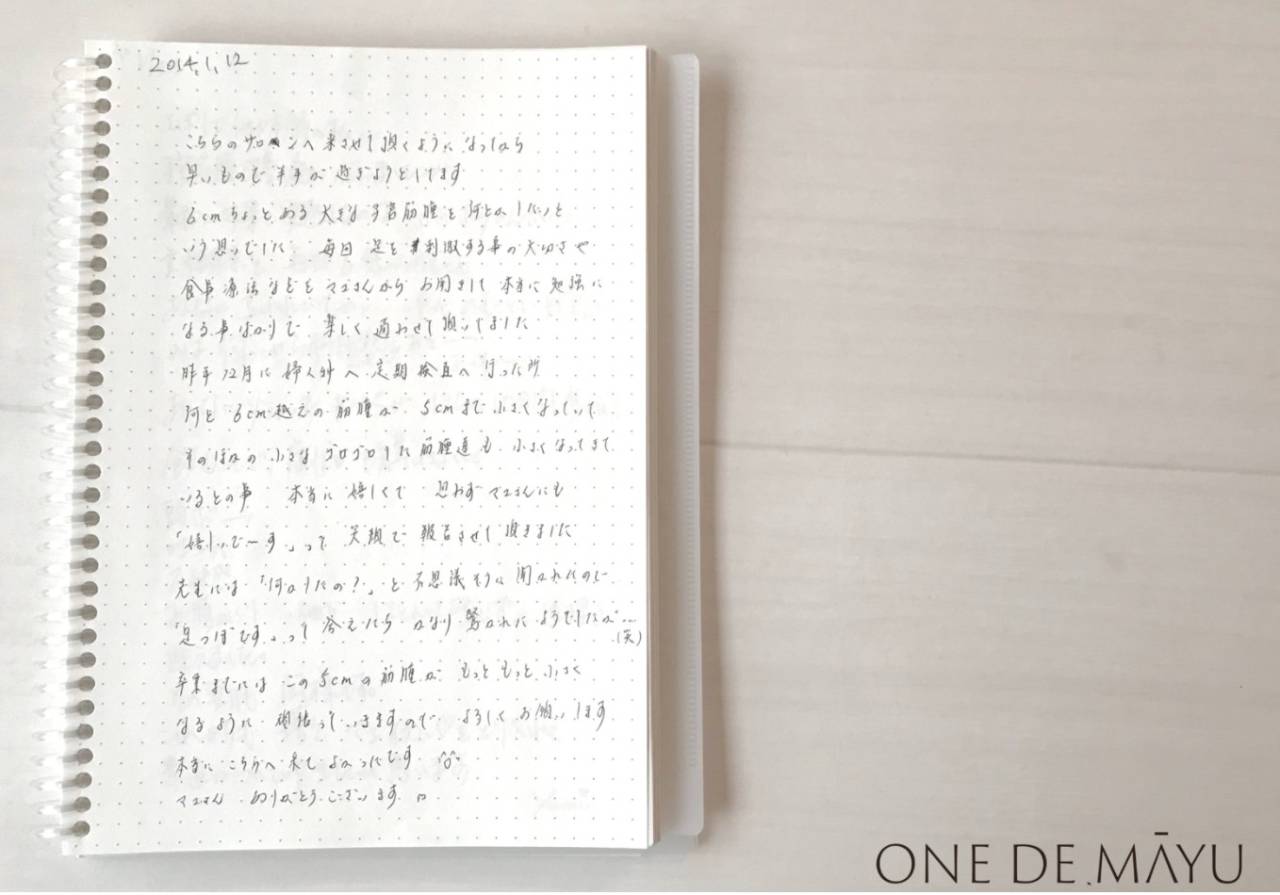 2014.1.12
こちらのサロンへ来させて頂くようになってから
早いもので半年が過ぎようとしてます
6cmちょっとある大きな子宮筋腫を何とかしたいと
いう思いでした 毎回 足を刺激する事の大切さや
食事療法などをマユさんからお聞きして 本当に勉強に
なる事ばかりで 楽しく通わせて頂いてました
昨年12月に婦人科へ定期検査へ行った所
何と 6cm越えの筋腫が 5cmまで小さくなっていて
そのほかの小さなゴロゴロした筋腫達も 小さくなってきて
いるとの事 本当に嬉しくて 思わずマユさんにも
「嬉しいでーす」って 笑顔で報告させて頂きました
先生には「何かしたの?」と不思議そうに聞かれたので
「足つぼです」って答えたら かなり驚かれたようでしたが…
(笑)
卒業までには この5cmの筋腫が もっともっと小さく
なるように 頑張っていきますので よろしくお願いします
本当に こちらへ来てよかったです ^^
マユさん ありがとうございます
ONE DE MĀYU